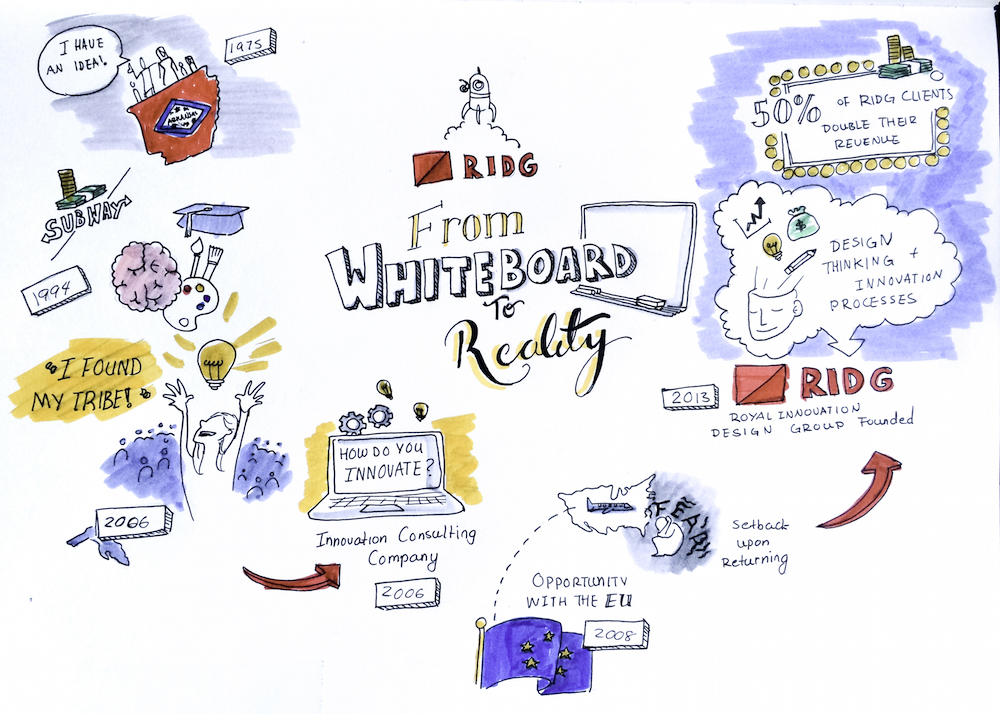 I HAVE
AN IDEA!
1975
ARKANSAS
SUBWAY
1994
"I FOUND
MY TRIBE!"
2006
RIDG
From
WHITEBOARD
To
Reality
HOW DO YOU
INNOVATE?
Innovation Consulting
Company
2006
OPPORTUNITY
WITH THE EU
2008
FEAR!!
Setback
upon
Returning
2013
RIDG
ROYAL INNOVATION
DESIGN GROUP Founded
DESIGN
THINKING +
INNOVATION
PROCESSES
$
50% OF RIDG CLIENTS
DOUBLE THEIR
REVENUE